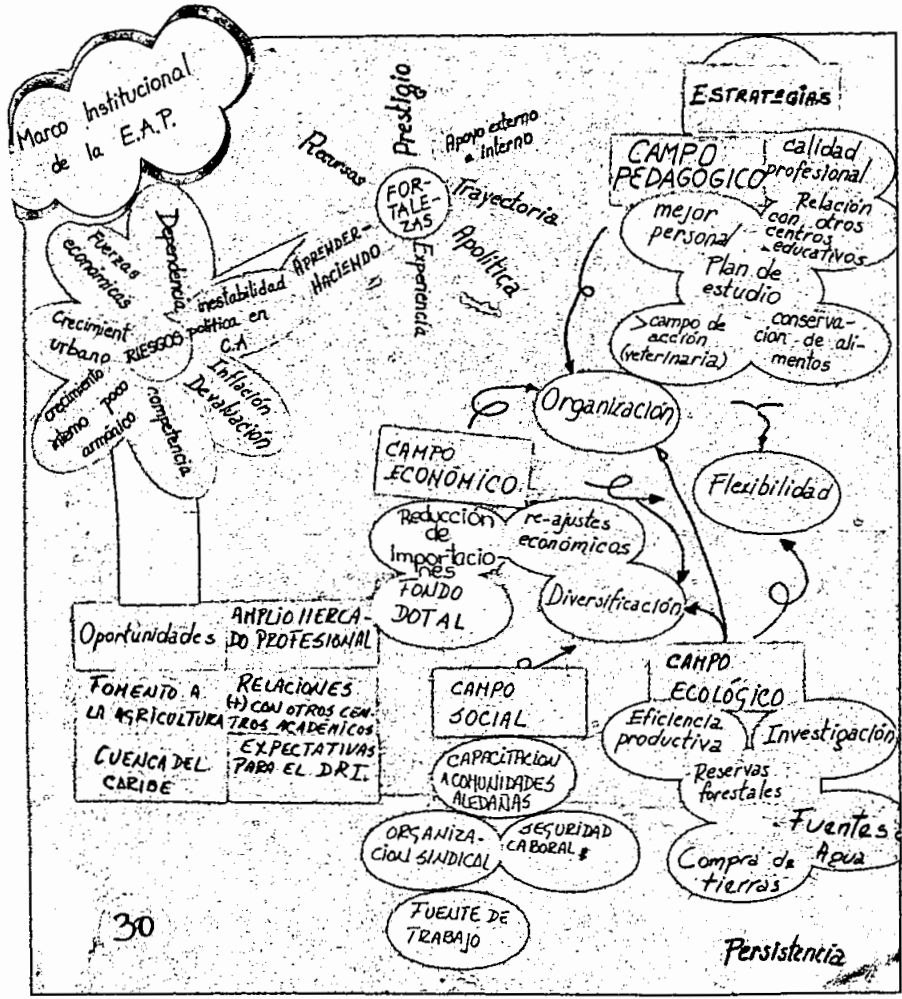 Marco Institucional
de la E.A.P.
Dependencia
Fuerzas
económicas
inestabilidad
política en
C.A
Crecimient
urbano
RIESGOS
crecimiento
interno poco
armónico
competencia
Inflación
Devaluación
Recursos
Prestigio
Apoyo externo
e interno
FOR-
TALE-
ZAS
Trayectoria
Apolítica
Experiencia
APRENDER-
HACIENDO
ESTRATEGIAS
CAMPO
PEDAGÓGICO
calidad
profesional
mejor
personal
Relación
con otros
centros
educativos
Plan de
estudio
>campo de
acción
(veterinaria)
conserva-
cion de ali-
mentos
Organización
Flexibilidad
CAMPO
ECONÓMICO
Reducción
de
importacio-
nes
re-ajustes
económicos
FONDO
DOTAL
Diversificación
Oportunidades
AMPLIO MERCA-
DO PROFESIONAL
FOMENTO A
LA AGRICULTURA
RELACIONES
(+) CON OTROS CEN-
TROS ACADÉMICOS
CUENCA DEL
CARIBE
EXPECTATIVAS
PARA EL DRI.
CAMPO
SOCIAL
CAPACITACION
A COMUNIDADES
ALEDAÑAS
ORGANIZA-
CION SINDICAL
SEGURIDAD
LABORAL $
FUENTE DE
TRABAJO
CAMPO
ECOLÓGICO
Eficiencia
productiva
Investigación
Reservas
forestales
Fuentes
Agua
Compra de
tierras
30
Persistencia